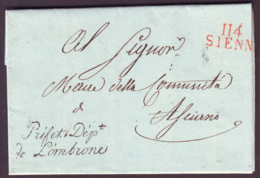 114
SIENN
Al Signor
Maire della Comunità
di
Asciano
Préfet Dépt
de l'Ombrone